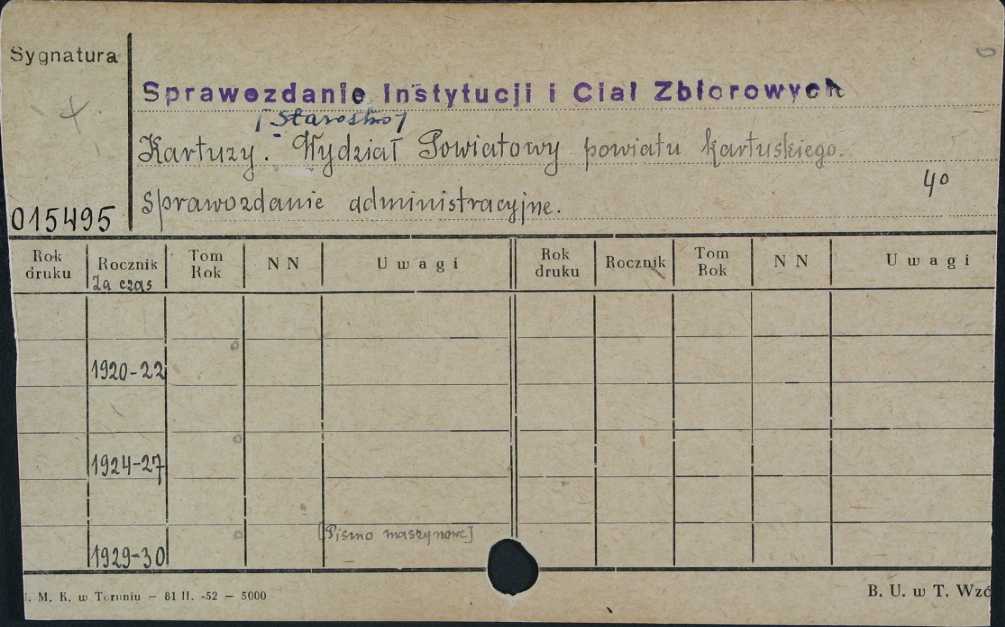 Sygnatura
Sprawozdanie Instytucji i Ciał Zbiorowych
[Starostwo]
Kartuzy. Wydział Powiatowy powiatu kartuskiego.
4o
Sprawozdanie administracyjne.
015495
Rok druku Rocznik Tom Rok N N Uwagi Rok druku Rocznik Tom Rok N N Uwagi
Za czas
1920-22
1924-27
[Pismo maszynowe]
1929-30
. M. K. w Toruniu — 81 II. -52 — 5000
B. U. w T. Wzó